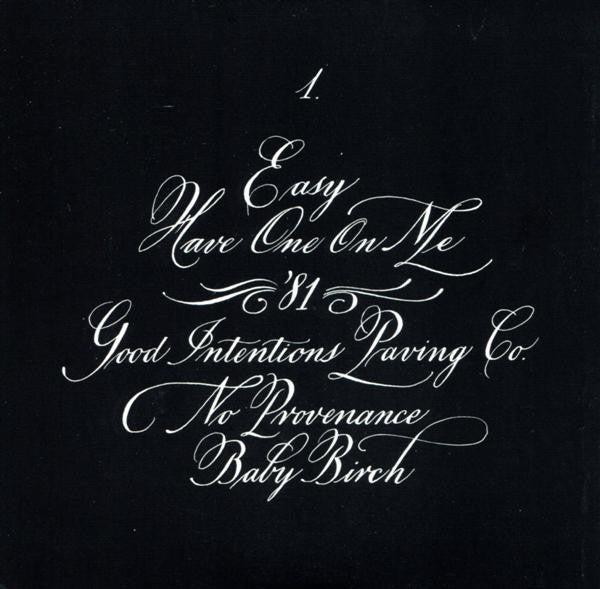 1.
Easy
Have One On Me
'81
Good Intentions Paving Co.
No Provenance
Baby Birch